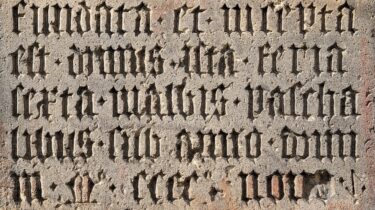 fundata · et incepta
est · domus · ista · feria
sexta · ma
 · pascha
libus · sub · anno · dom
m · cccc · non